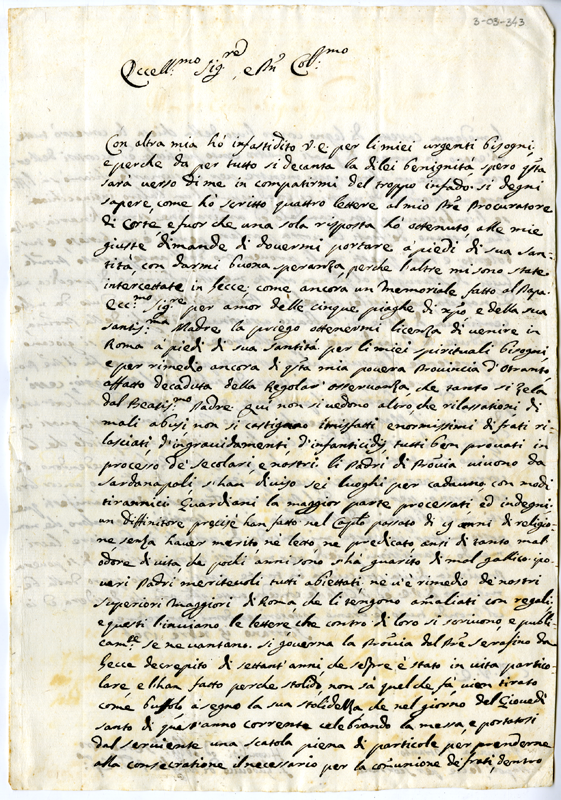 3-03-343
Eccell.mo Sig.re, e Pn̄ Coll.mo
Con altra mia hò infastidito V. E. per li miei urgenti bisogni,
e perche da per tutto si decanta la dilei benignità spero q̄sta
sarà verso di me in compatirmi del troppo infado. si degni
sapere, come hò scritto quattro lettere al mio Pr̄e Procuratore
di Corte, e fuor che una sola risposta hò ottenuto, alle mie
giuste dimande di dovermi portare a piedi di sua San-
tità, con darmi buona speranza, perche l'altre mi sono state
intercettate in Lecce, come ancora un Memoriale fatto al Papa.
Ecc.mo Sig.re per amor delle cinque piaghe di xp̄o, e della sua
santis.ma Madre la priego ottenermi licenza di venire in
Roma a piedi di sua Santità per li miei spirituali bisogni,
e per rimedio ancora di q̄sta mia povera Provincia d'Otranto
affatto decaduta della Regolar' osservanza, che tanto si zela
dal Beatis.mo Padre. Qui non si vedono altro che rilassationi di
mali abusi non si castigano misfatti enormissimi di frati ri-
lasciati, d'ingravidamenti, d'infanticidij, tutti ben provati in
processo de' secolari, e nostri. li Padri di Prōvia vivono da
Sardanapali si han diviso sei luoghi per caduno con modi
tirannici Guardiani la maggior parte processati ed indegni,
un diffinitore precise han fatto nel Cap̄lo passato di 19 anni di religio-
ne, senza haver merito, ne letto ne predicato, anzi di tanto mal'
odore di vita che pochi anni sono s'hà guarito di mal gallico. i po-
veri Padri meritevoli tutti abiettati, ne v'è rimedio de' nostri
superiori Maggiori di Roma che li tengono ammaliati con regali,
e questi l'inviano le lettere che contro di loro si scrivono, e publi-
cam.te se ne vantano. si governa la Prōvia dal Pr̄e Serafino da
Lecce decrepito di settant'anni, che sēpre è stato in vita partico-
lare, e l'han fatto perche stolido, non sà quel che fà, vien tirato
come buffolo à segno la sua stolidezza che nel giorno del Giovedi
santo di quest'anno corrente celebrando la messa, e portatosi
dal serviente una scatola piena di particole per prenderne
alla consecratione il necessario per la cōmunione de' frati, dentro